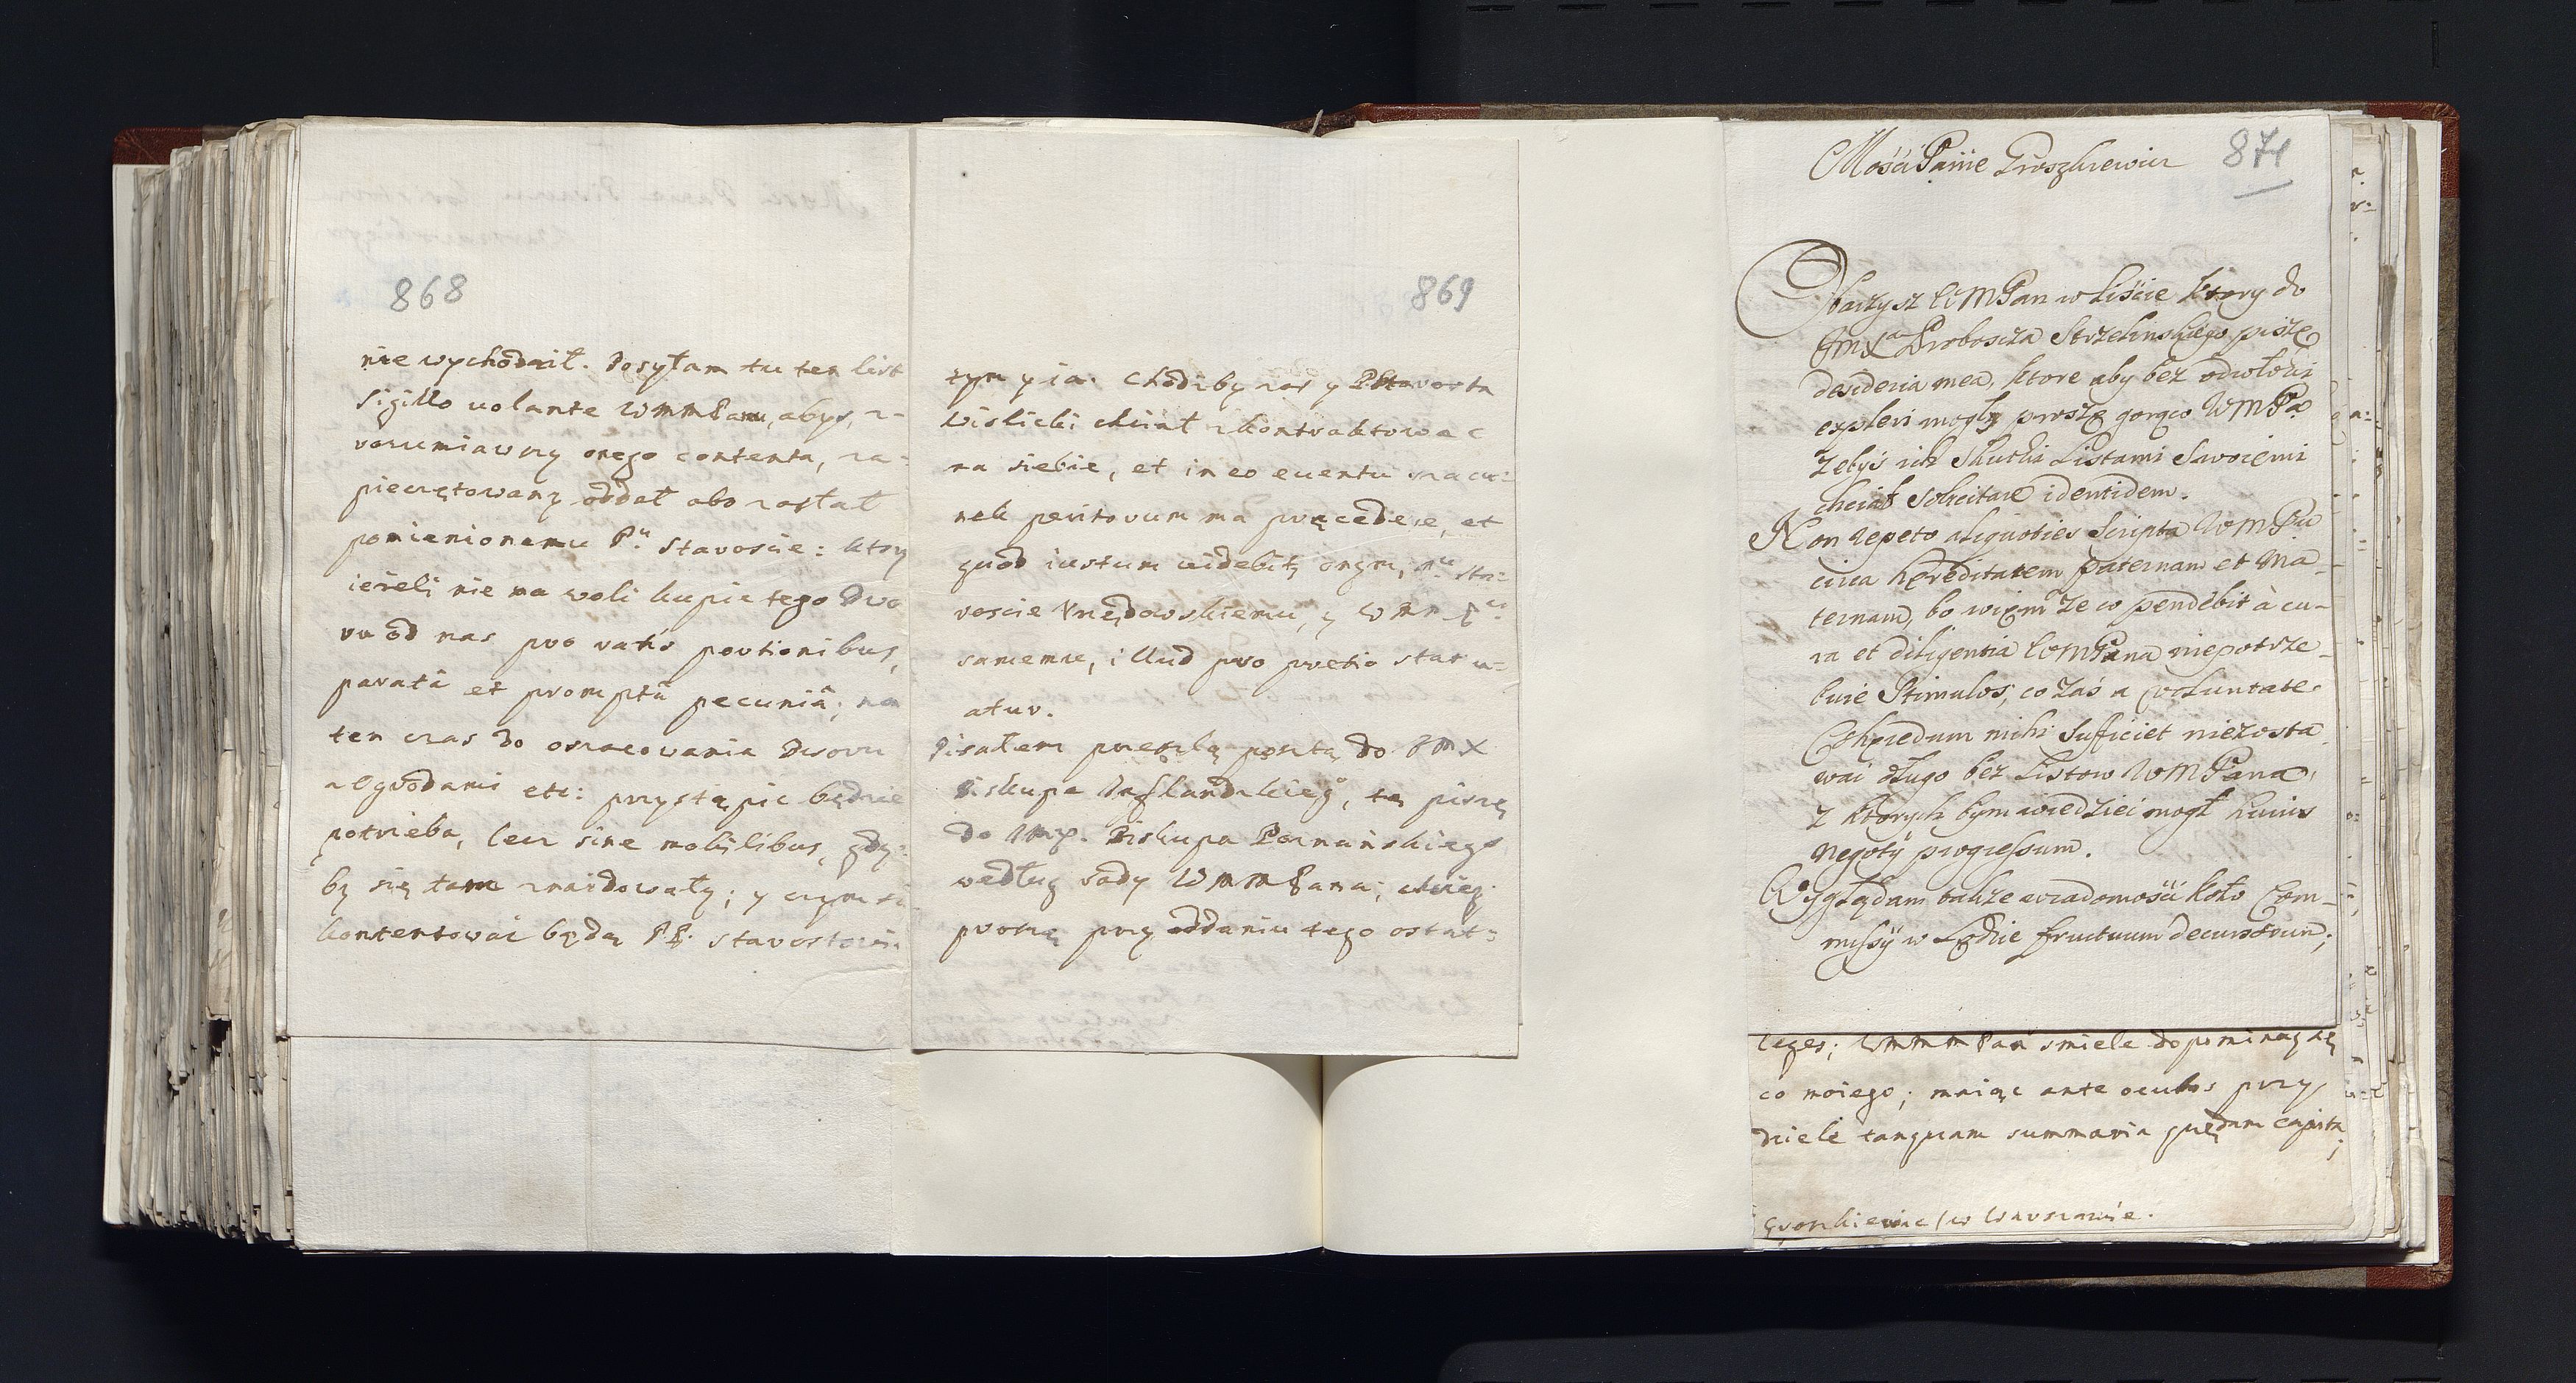 868
nie wychodził. Posyłam tu ten list
sigillo volante WMMPanu, abyś, z-
rozumiawszy onego contenta, za-
pieczętowany oddał abo zosłał
pomienionemu Pu. Staroście: ktory
ieżeli nie ma woli kupic tego Dwo
ru od nas pro ratis portionibus,
paratâ et promptâ pecuniâ; na
ten czas do oszacowania Dworu
z Ogrodami etc: przystąpic będzie
potrzeba, lecz sine mobilibus, gdy-
by się tam znaidowały; y czym
kontentowac będą PP. Starostowie
869
tym y ia. Chodzby zas y PStarosta
Wislicki chciał zkontraktowac
na siebie, et in eo euentu szacu:
nek peritorum ma præcedere, et
quod iustum uidebitz onym, Pu. Sta-
roscie Krzędowskiemu, y WMM Pu.
samemu, illud pro pretio statu-
atur.
Pisałem przeszłą pocztą do JMX
Biskupa Inflandzkieg°, tą piszę
do JMX. Biskupa Poznańskiego
według rady WMMPana;
proszę przy oddaniu tego ostat:
871
Mośći Panie Groszkiewicz
Obaczysz WMPan w Liśćie ktory do
JmXa Proboszcza Strzelinskiego piszę
desideria mea, ktore aby bez odwłoki
expleri mogły proszę gorąco WMPa
żebyś ich skutki Listami Swoiemi
chciał Solicitare identidem.
Non repeto aliquoties Scripta WMPu
circa hæreditatem paternam et Ma-
ternam, bo wiem że co pendebit à cu-
ra et diligentia WMPana niepotrze-
buie Stimulos, co zaś a voluntate
Chæredum mihi Sufficiet niezosta-
wać długo bez Listow WMPana,
z ktorych bym wiedzieć mogł huius
Negotÿ progressum.
Wyglądam także wiadomośći koło Com-
missÿ w Łodzie fructuum decursorum;
leges; WMMMPan smiele dopominay się
co moiego; maiąc ante oculos przy
dziele tanquam summaria quædam capita;
Groszkiewicz w Warszawie.